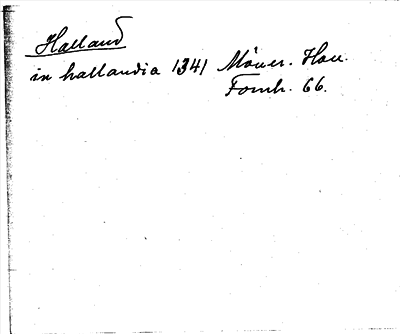 Halland
in hallandia 1341 Möner. Hall.
Fornh. 66.